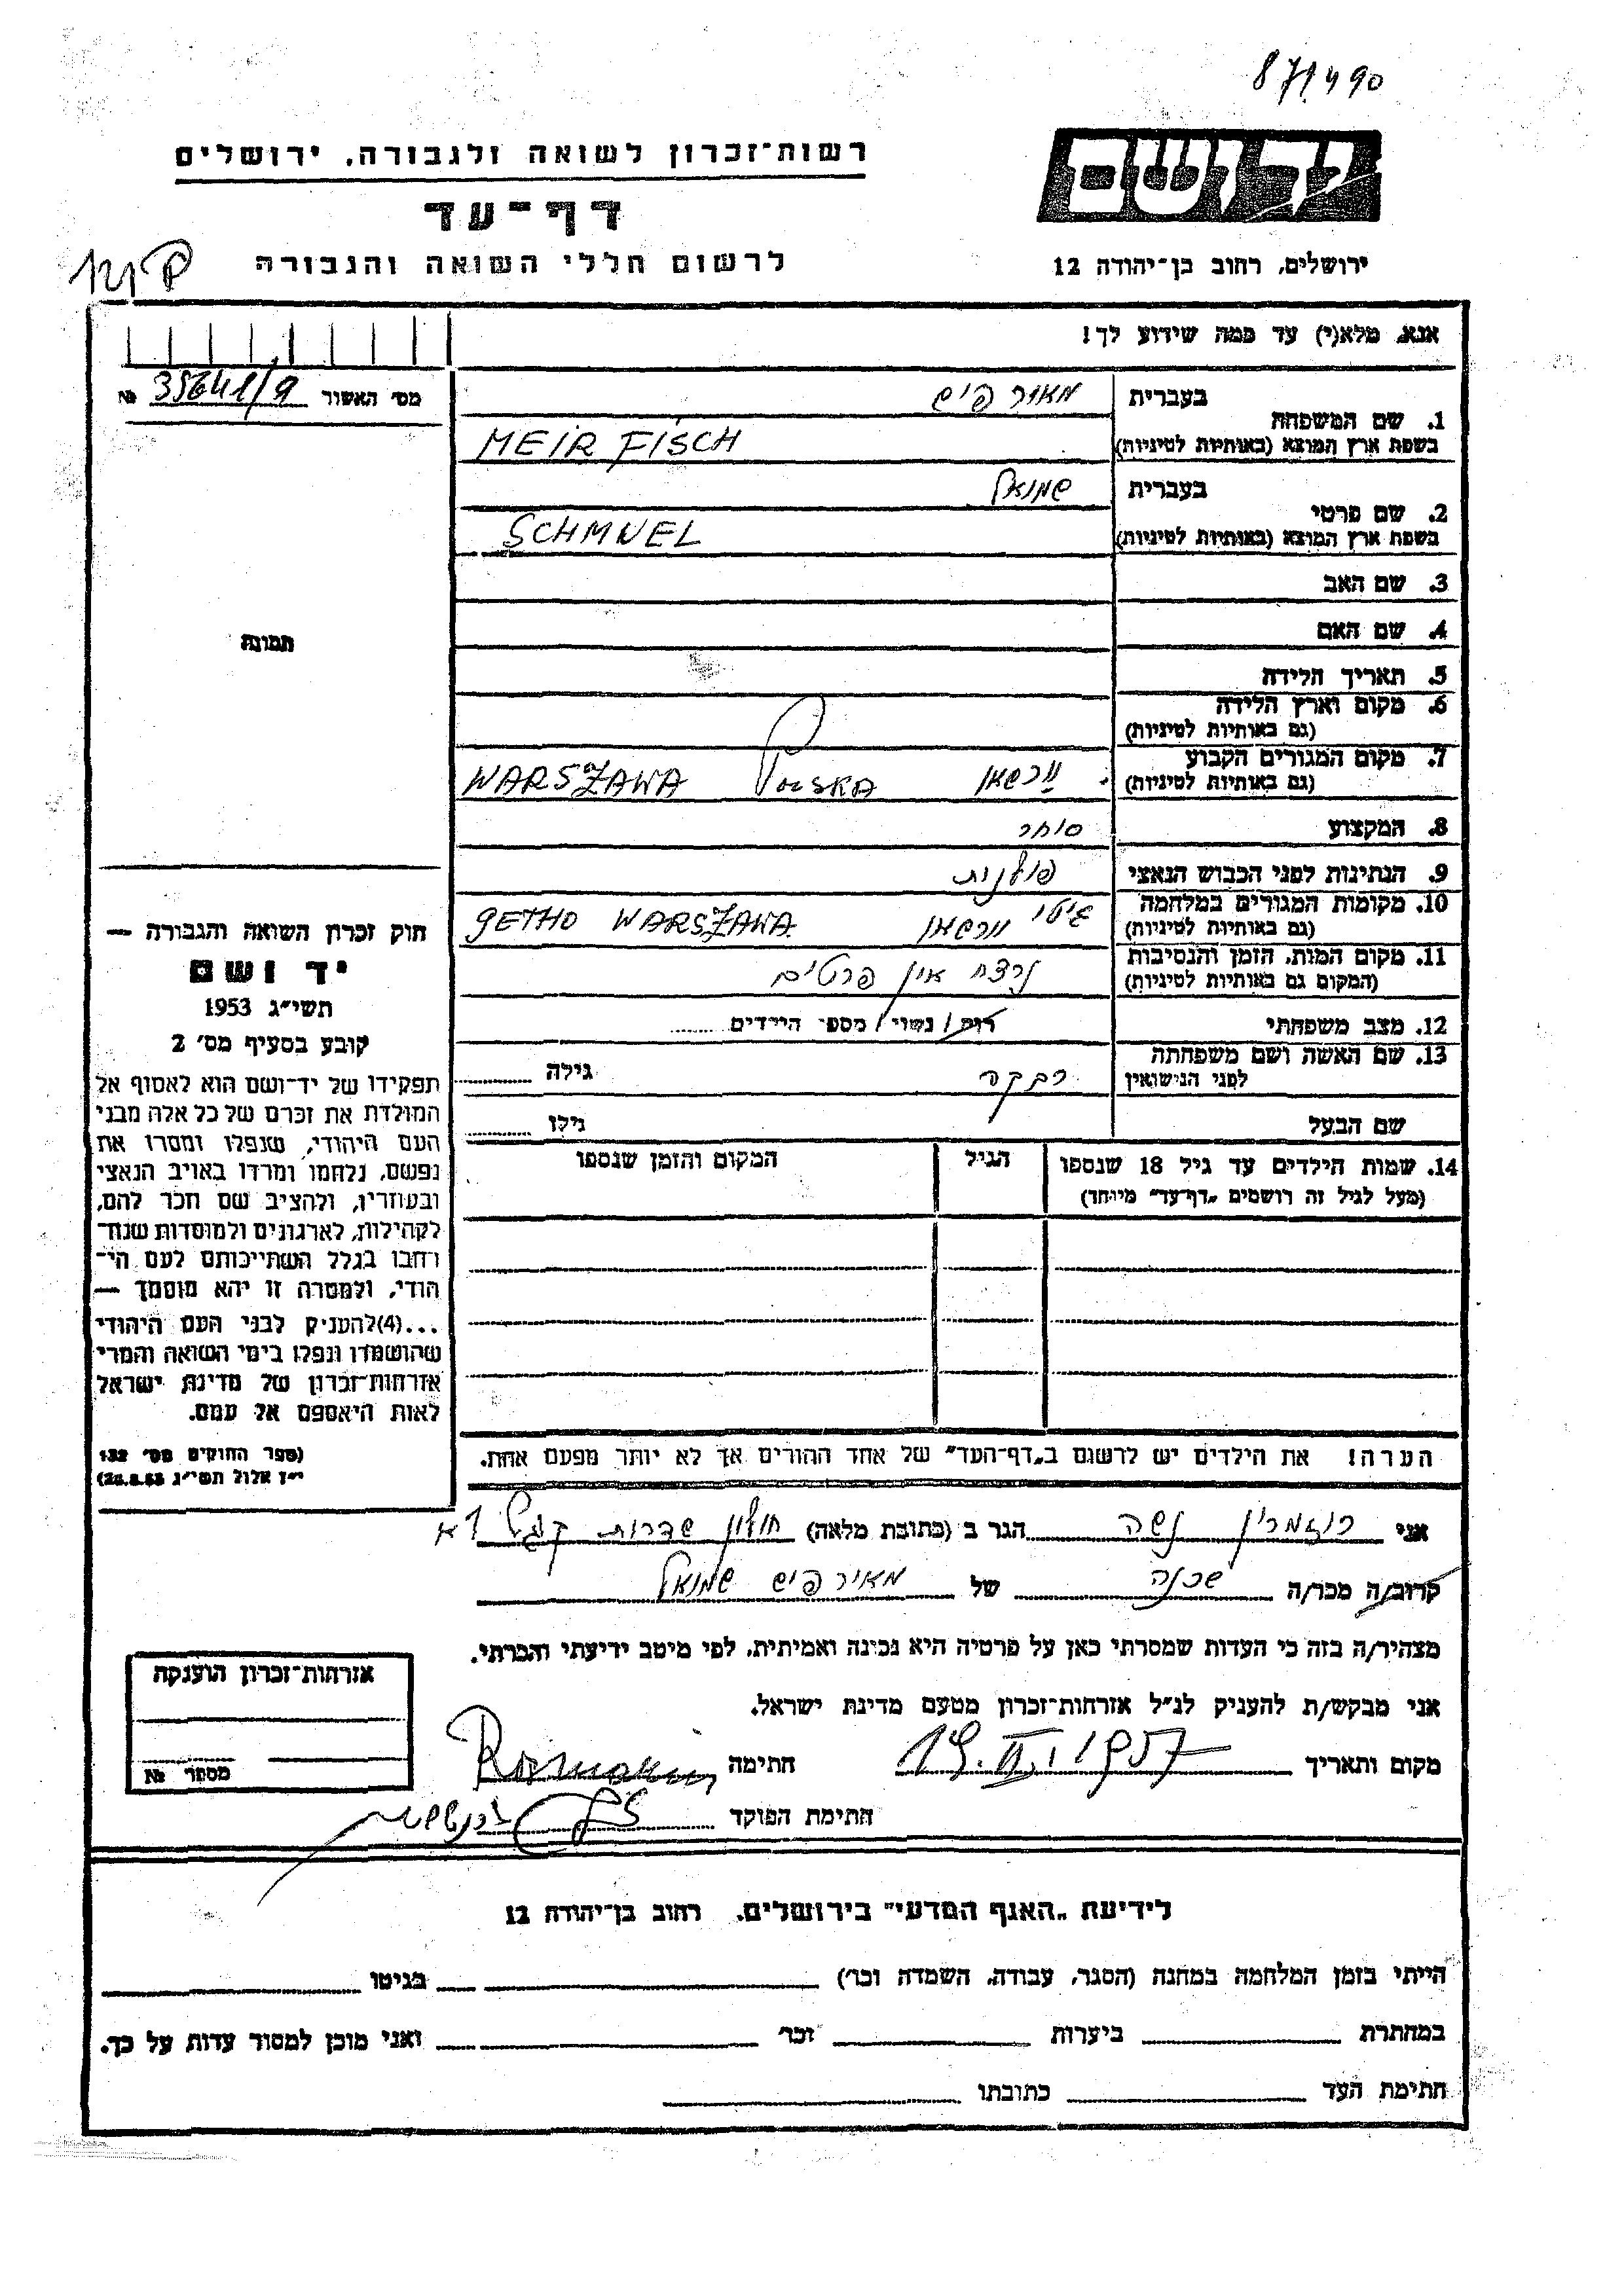 871490
רשות־זכרון לשואה ולגבורה, ירושלים
יד ושם
דף־עד
לרשום חללי השואה והגבורה
ירושלים, רחוב בן־יהודה 12
אנא, מלא(י) עד כמה שידוע לך!
מס׳ האשור 35641/9 №
תמונה
1. שם המשפחה
בעברית מאיר פיש
בשפת ארץ המוצא (באותיות לטיניות) MEIR FISCH
2. שם פרטי
בעברית שמואל
בשפת ארץ המוצא (באותיות לטיניות) SCHMNEL
3. שם האב
4. שם האם
5. תאריך הלידה
6. מקום וארץ הלידה
(גם באותיות לטיניות)
7. מקום המגורים הקבוע
(גם באותיות לטיניות) ורשאו Polska WARSZAWA
8. המקצוע סוחר
9. הנתינות לפני הכבוש הנאצי פולנית
10. מקומות המגורים במלחמה
(גם באותיות לטיניות) גיטו ורשאו GETHO WARSZAWA
11. מקום המות, הזמן והנסיבות
(המקום גם באותיות לטיניות) נרצח אין פרטים
12. מצב משפחתי רוק/ נשוי/ מספר הילדים
13. שם האשה ושם משפחתה
לפני הנישואין רבקה גילה
שם הבעל גילו
14. שמות הילדים עד גיל 18 שנספו הגיל המקום והזמן שנספו
(מעל לגיל זה רושמים „דף־עד" מיוחד)
הערה! את הילדים יש לרשום ב„דף־העד" של אחד ההורים אך לא יותר מפעם אחת.
חוק זכרון השואה והגבורה —
יד ושם
תשי״ג 1953
קובע בסעיף מס׳ 2
תפקידו של יד־ושם הוא לאסוף אל
המולדת את זכרם של כל אלה מבני
העם היהודי, שנפלו ומסרו את
נפשם, נלחמו ומרדו באויב הנאצי
ובעוזריו, ולהציב שם וזכר להם,
לקהילות, לארגונים ולמוסדות שנח־
רבו בגלל השתייכותם לעם הי־
הודי, ולמטרה זו יהא מוסמך —
...(4)להעניק לבני העם היהודי
שהושמדו ונפלו בימי השואה והמרי
אזרחות־זכרון של מדינת ישראל
לאות היאספם אל עמם.
(ספר החוקים מס׳ 132
י״ז אלול תשי״ג 28.8.53)
אני רוזמרין נשה הגר ב (כתובת מלאה) חולון שדרות קגל 1א
קרוב/ה מכר/ה שכנה של מאיר פיש שמואל
מצהיר/ה בזה כי העדות שמסרתי כאן על פרטיה היא נכונה ואמיתית, לפי מיטב ידיעתי והכרתי.
אני מבקש/ת להעניק לנ״ל אזרחות־זכרון מטעם מדינת ישראל.
מקום ותאריך 19.II.1957 חתימה
חתימת הפוקד
אזרחות־זכרון הוענקה
מספר №
לידיעת „האגף המדעי" בירושלים, רחוב בן־יהודה 12
הייתי בזמן המלחמה במחנה (הסגר, עבודה, השמדה וכו׳) בגיטו
במחתרת ביערות וכו׳ ואני מוכן למסור עדות על כך.
חתימת העד כתובתו